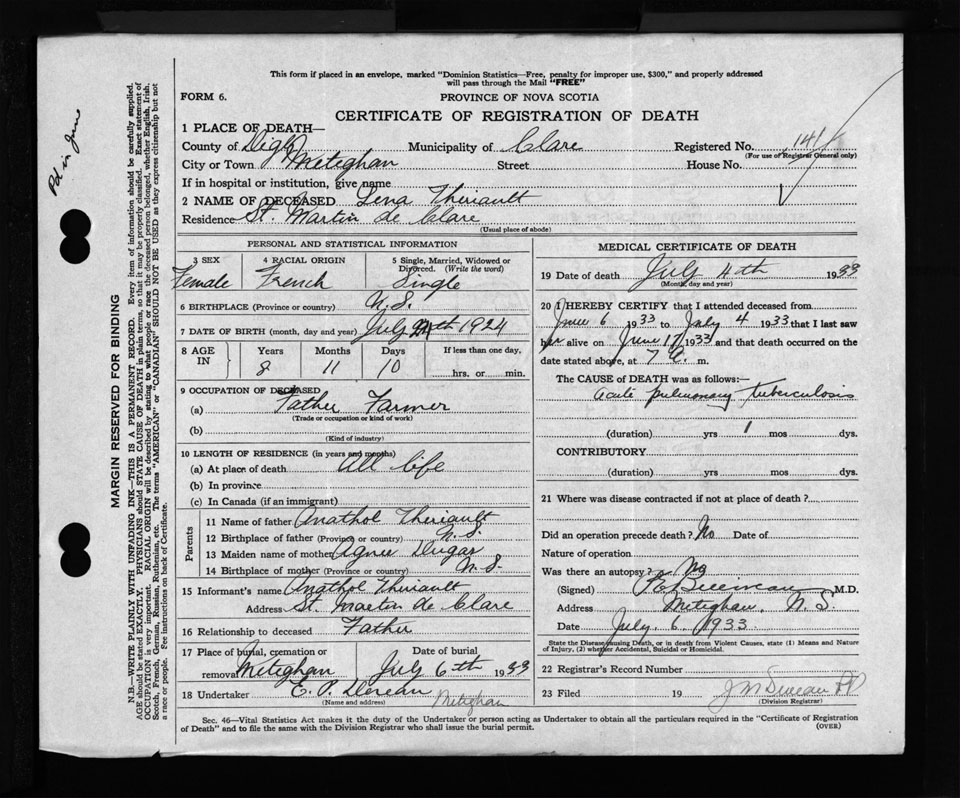 This form if placed in an envelope, marked "Dominion Statistics—Free, penalty for improper use, $300," and properly addressed
will pass through the Mail "FREE"
FORM 6. PROVINCE OF NOVA SCOTIA
CERTIFICATE OF REGISTRATION OF DEATH
1 PLACE OF DEATH—
County of Digby Municipality of Clare Registered No. 141
(For use of Registrar General only)
City or Town Meteghan Street House No.
If in hospital or institution, give name
2 NAME OF DECEASED Lena Theriault
Residence St. Martin de Clare
(Usual place of abode)
PERSONAL AND STATISTICAL INFORMATION
3 SEX 4 RACIAL ORIGIN 5 Single, Married, Widowed or
Divorced. (Write the word)
Female French Single
6 BIRTHPLACE (Province or country) N.S.
7 DATE OF BIRTH (month, day and year) July 24th 1924
8 AGE IN Years Months Days If less than one day,
8 11 10 hrs. or min.
9 OCCUPATION OF DECEASED
(a) Father Farmer
(Trade or occupation or kind of work)
(b)
(Kind of industry)
10 LENGTH OF RESIDENCE (in years and months)
(a) At place of death All life
(b) In province
(c) In Canada (if an immigrant)
Parents
11 Name of father Anathol Theriault
12 Birthplace of father (Province or country) N.S.
13 Maiden name of mother Agnes Dugas
14 Birthplace of mother (Province or country) N.S.
15 Informant's name Anathol Theriault
Address St. Martin de Clare
16 Relationship to deceased Father
17 Place of burial, cremation or
removal Meteghan Date of burial July 6th 1933
18 Undertaker E. P.
(Name and address) Meteghan
MEDICAL CERTIFICATE OF DEATH
19 Date of death July 4th 1933
(Month, day and year)
20 I HEREBY CERTIFY that I attended deceased from
June 6 1933 to July 4 1933 that I last saw
her alive on June 1933 and that death occurred on the
date stated above, at 7 a. m.
The CAUSE OF DEATH was as follows:—
Acute pulmonary tuberculosis
(duration) yrs 1 mos dys.
CONTRIBUTORY
(duration) yrs mos dys.
21 Where was disease contracted if not at place of death?
Did an operation precede death? No Date of
Nature of operation
Was there an autopsy? No
(Signed) M.D.
Address Meteghan, N.S.
Date July 6 1933
State the Disease causing Death, or in death from Violent Causes, state (1) Means and Nature
of Injury, (2) whether Accidental, Suicidal or Homicidal.
22 Registrar's Record Number
23 Filed 19
(Division Registrar)
Sec. 46—Vital Statistics Act makes it the duty of the Undertaker or person acting as Undertaker to obtain all the particulars required in the "Certificate of Registration
of Death" and to file the same with the Division Registrar who shall issue the burial permit. (OVER)
in June
MARGIN RESERVED FOR BINDING
N.B.—WRITE PLAINLY WITH UNFADING INK—THIS IS A PERMANENT RECORD. Every item of information should be carefully supplied.
AGE should be stated EXACTLY. PHYSICIANS should STATE CAUSE OF DEATH in plain terms, so that it may be properly classified. Exact statement of
OCCUPATION is very important. RACIAL ORIGIN will be described by stating to what people or race the deceased person belonged, whether English, Irish,
Scotch, French, German, Russian, Ruthenian, etc. The terms "AMERICAN" or "CANADIAN" SHOULD NOT BE USED as they express citizenship but not
a race or people. Fee instructions on back of Certificate.